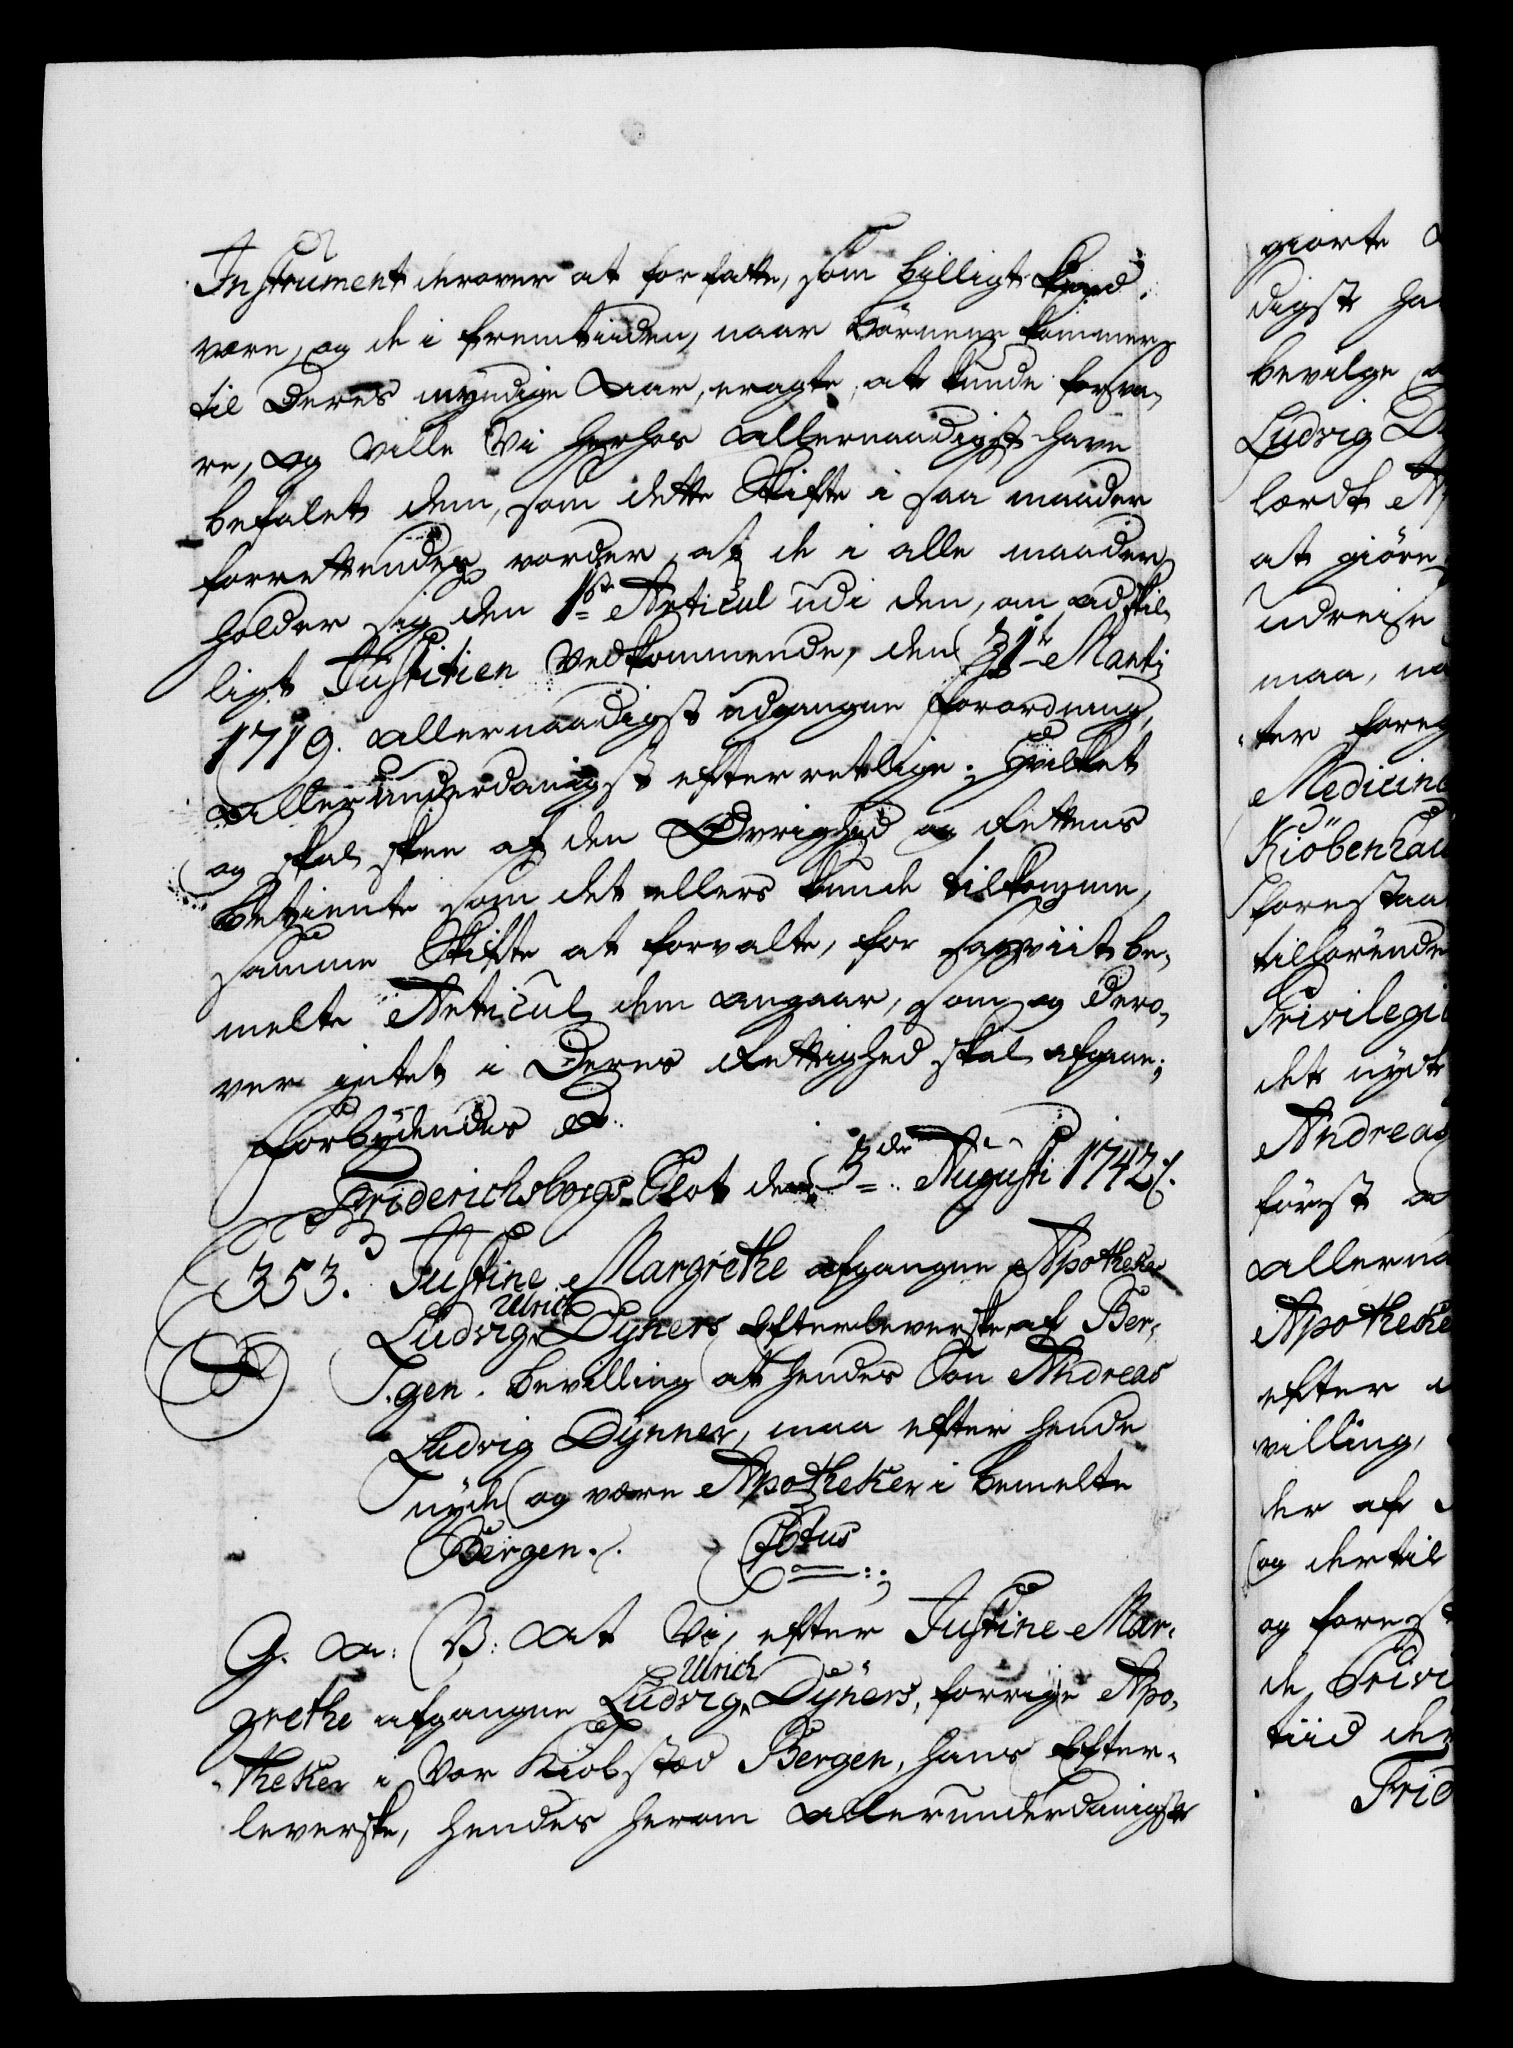 Instrument derover at forfatte, som billigt kand
være, og de i fremtiiden, naar Börnene kommer
til Deres myndige Aar, eragte, at kunde forsva-
re, og ville Vi herhos allernaadigst have
befalet dem, som dette Skifte i saa maader
forrettendes vorder, at de i alle maader
holder sig den 1ste Articul udi den, om adskil-
ligt Justitien vedkommende, den 31te Marti
1719. allernaadigst udgangne Forordning,
allerunderdanigst efterretlige; Hvilket
og skal skee af den Øvrighed og Rettens
Betiente som det ellers kunde tilkomme,
samme Skifte at forvalte, for saaviit be-
melte Articul dem angaar, som og dero-
ver intet i Deres Rettighed skal afgaae;
Forbydendes &
Friderichsborgs Slot den 3de Augusti 1742 /.
353. Justine Margrethe afgangne Apotheker
Ludvig Ulrich Dyners Efterleverske af Ber-
gen. bevilling at hendes Søn Andreas
Ludvig Dynner, maa efter hende
nyde og være Apotheker i bemelte
Bergen. /. Cbtus
G. A: V: At Vi, efter Justine Mar-
grethe afgangne Ludvig Ulrich Dyners, forrige Apo-
theker i Vor Kiøbstæd Bergen, hans Efter-
leverske, hendes herom allerunderdanigst
giorte
digst ha
bevilge
Ludvig D
lærdt
at giöre
udreise
maa, na
ter foreg
Medicin
Kiöbenhau
forestaa
tilhörende
Privilegi
det nyde
Andreas
först
allerna
Apotheke
efter
villing,
der af
og dertil
og fores
de Privi
tiid der
Frid